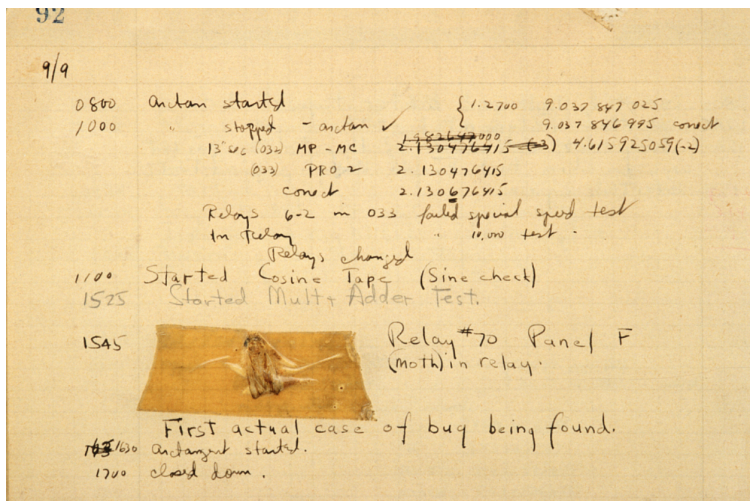 92
9/9
0800 arctan started { 1.2700 9.037 847 025
1000 " stopped - arctan ✓ 9.037 846 995 correct
13"uc (032) MP - MC 2.130476415 (-3) 4.615925059(-2)
(033) PRO 2 2.130476415
correct 2.130676415
Relays 6-2 in 033 failed special speed test
In Relay " 10,000 test.
Relays changed
1100 Started Cosine Tape (Sine check)
1525 Started Mult+ Adder Test.
1545 Relay #70 Panel F
(moth) in relay.
First actual case of bug being found.
1630 arctangent started.
1700 closed down.